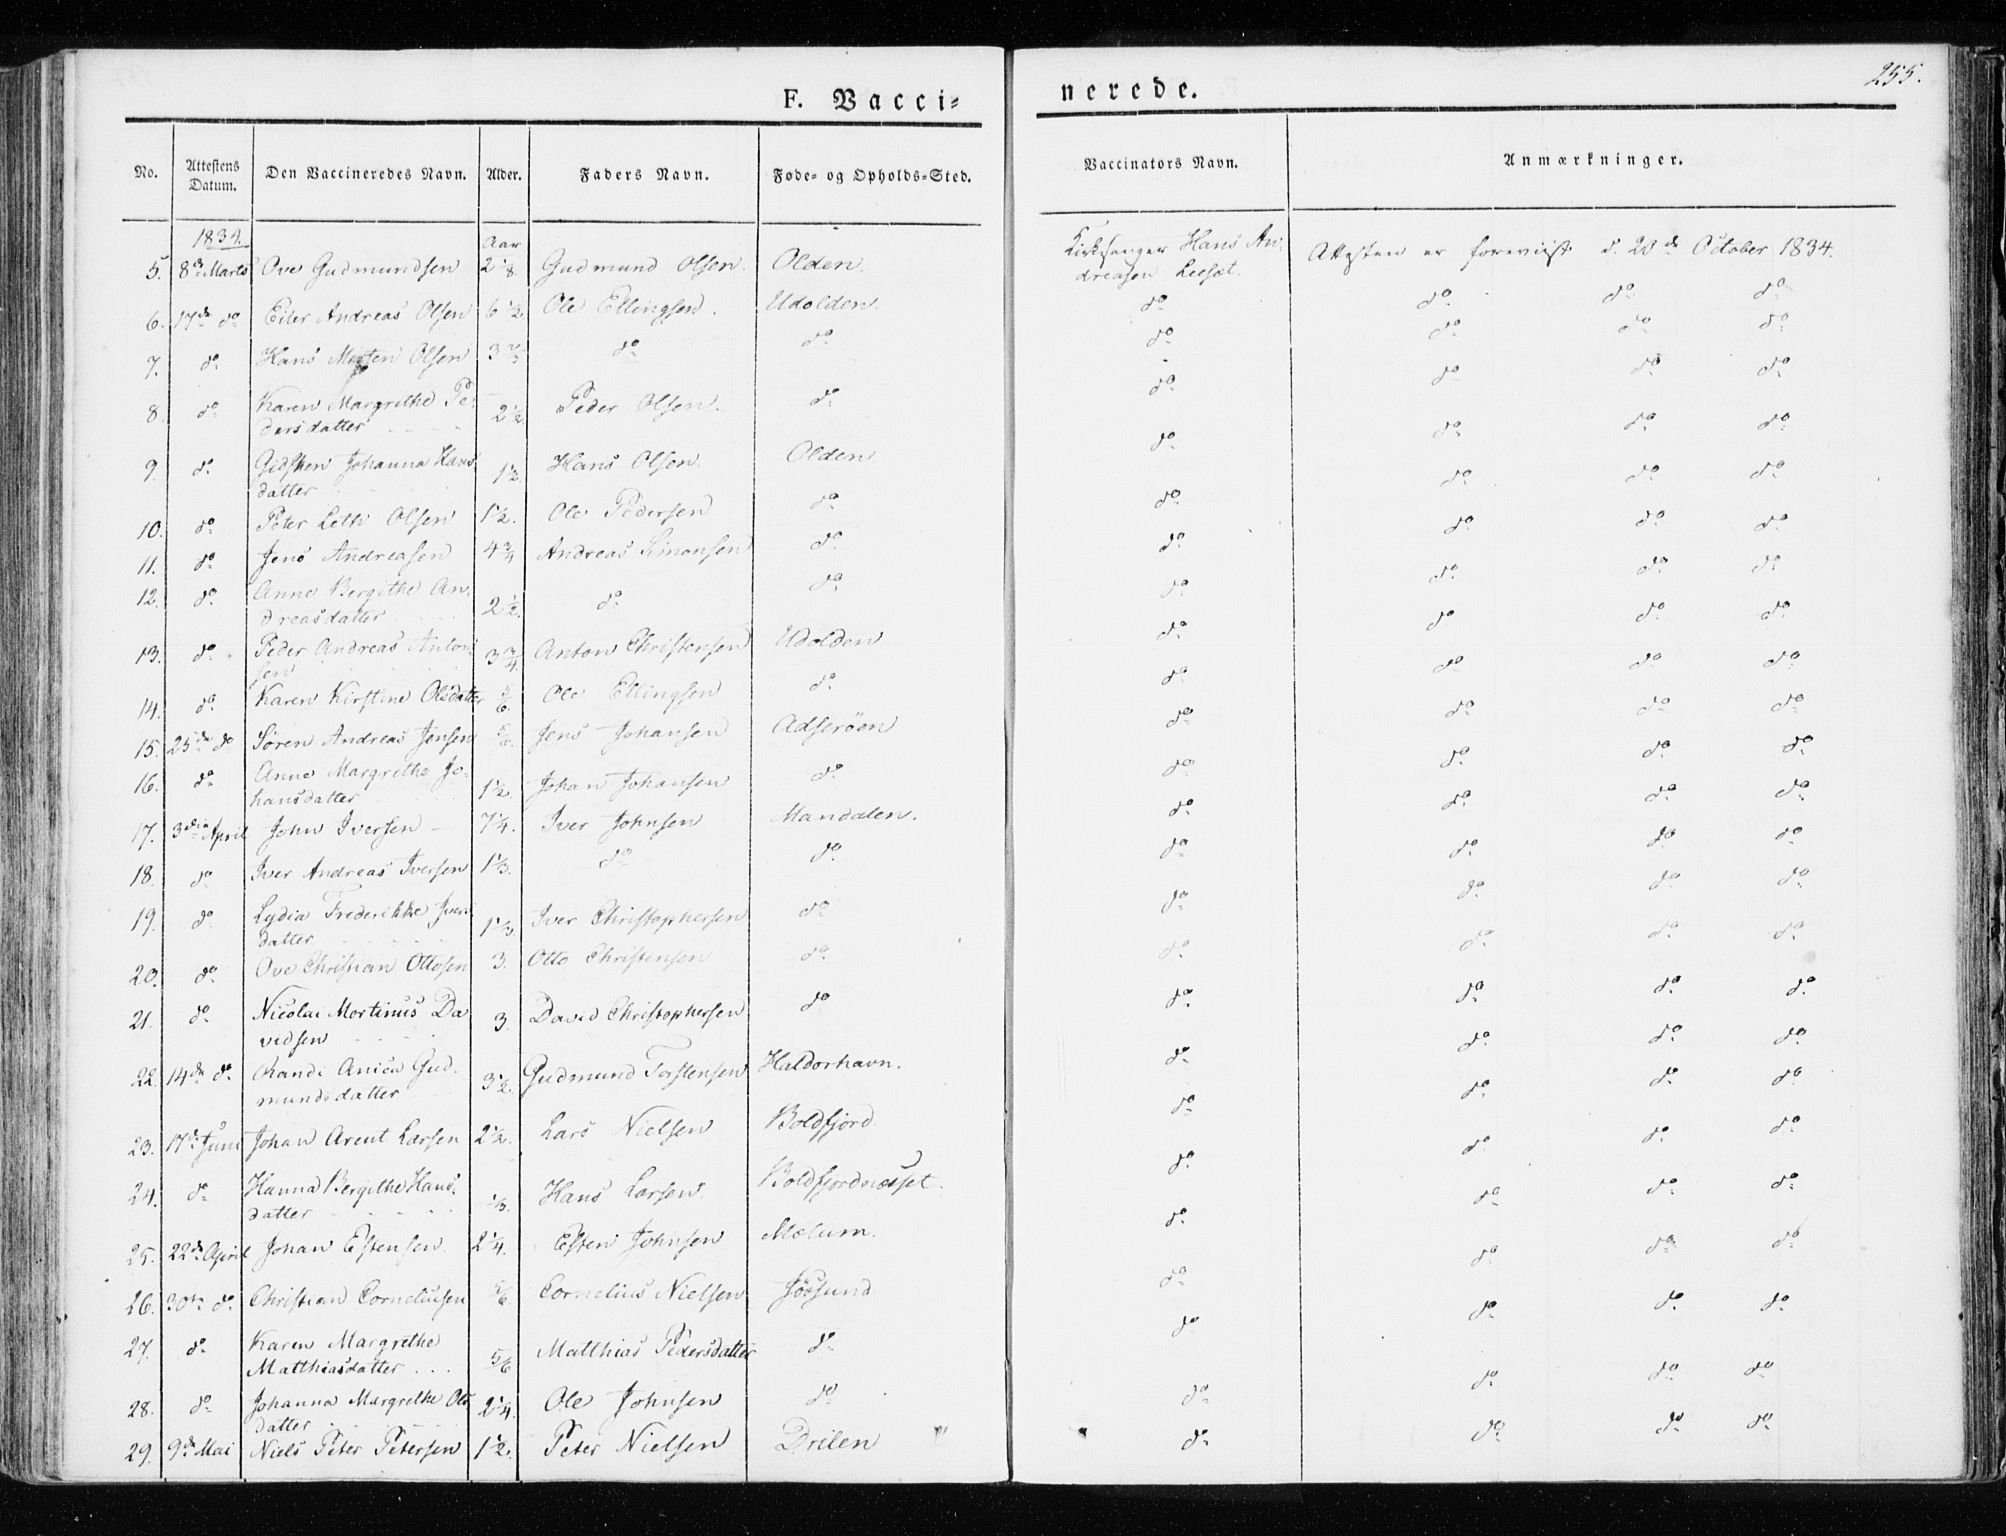 255.
F. Vacci=
nerede.
No.
Attestens Datum.
Den Vaccineredes Navn.
Alder.
Faders Navn.
Føde= og Opholds=Sted.
Vaccinators Navn.
Anmærkninger.
1834.
Aar
5. 8de Marts Ove Gudmundsen 2 1/8. Gudmund Olsen. Olden. Kirkesanger Hans An- Attesten er foreviist d. 28de October 1834.
dreasen Leesæt.
6. 17de do Eiler Andreas Olsen 6 1/2 Ole Ellingsen. Udolden. do do do do
7. do Hans Morten Olsen 3 2/3 do do do do do do
8. do Karen Margrethe Pe- 2 1/2 Peder Olsen. do do do do do
dersdatter
9. do Gidsken Johanna Hans 1 1/2 Hans Olsen. Olden. do do do do
datter
10. do Peter Leth Olsen 1 1/2. Ole Pedersen do do do do do
11. do Jens Andreasen 4 3/4 Andreas Simonsen do do do do do
12. do Anne Bergithe An- 2 1/2. do do do do do do
dreasdatter
13. do Peder Andreas Anton 3 3/4. Anton Christensen Udolden do do do do
sen
14. do Karen Kirstine Olsdatter 5/6. Ole Ellingsen do do do do do
15. 25de do Søren Andreas Jensen 5/6. Jens Johansen Adserøen do do do do
16. do Anne Margrethe Jo- 1 1/2. Johan Johansen do do do do do
hansdatter
17. 3die April John Iversen 7 1/4. Iver Johnsen Mandalen. do do do do
18. do Iver Andreas Iversen 1 1/3. do do do do do do
19. do Lydia Frederikke Ivers 1 1/3. Iver Christophersen do do do do do
datter
20. do Ove Christian Ottosen 3. Otto Christensen do do do do do
21. do Nicolai Mortinus Da 3. David Christophersen do do do do do
vidsen
22. 14de do Randi Anica Gud- 3 1/2. Gudmund Torstensen Haldorhavn. do do do do
mundsdatter
23. 17de Juni Johan Arent Larsen 2 1/2. Lars Nielsen Boldfjord do do do do
24. do Hanna Bergithe Hans- 1/3. Hans Larsen. Boldfjordnæsset. do do do do
datter
25. 22de April Johan Estensen. 2 1/4. Esten Johnsen Mælum. do do do do
26. 30te do Christian Corneliusen 5/6. Cornelius Nielsen Jøssund do do do do
27. do Karen Margrethe 5/6 Matthias Pedersdatter do do do do do
Matthiasdatter
28. do Johanna Margrethe Ols 2 1/4. Ole Johnsen do do do do do
datter
29. 9de Mai Niels Peter Petersen 1 1/2. Peter Nielsen Drilen do do do do